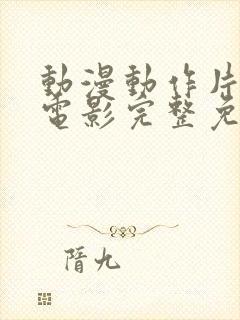 動漫動作片
電影完整免
隋九